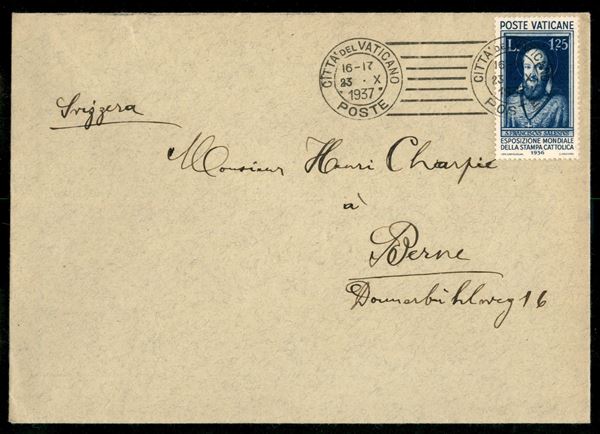 CITTÀ DEL VATICANO
16-17
23 · X
1937
POSTE
CITTÀ
16
23 X
POSTE VATICANE
L. 1.25
S. FRANCISCUS SALESIUS
ESPOSIZIONE MONDIALE
DELLA STAMPA CATTOLICA
1936
Svizzera
Monsieur Henri Charpié
à
Berne
Donnerbühlweg 16